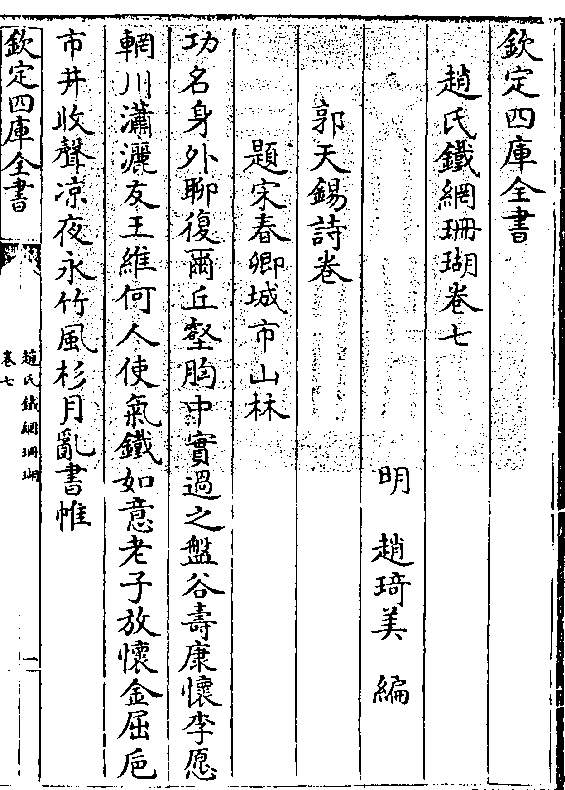 欽定四庫全書
趙氏鐵網珊瑚卷七
明 趙琦美 編
郭天錫詩卷
題宋春卿城市山林
功名身外聊復爾丘壑胸中實過之盤谷壽康懷李愿
輞川瀟灑友王維何人使氣鐵如意老子放懷金屈巵
市井收聲凉夜永竹風杉月亂書帷
欽定四庫全書
趙氏鐵網珊瑚
卷七
一